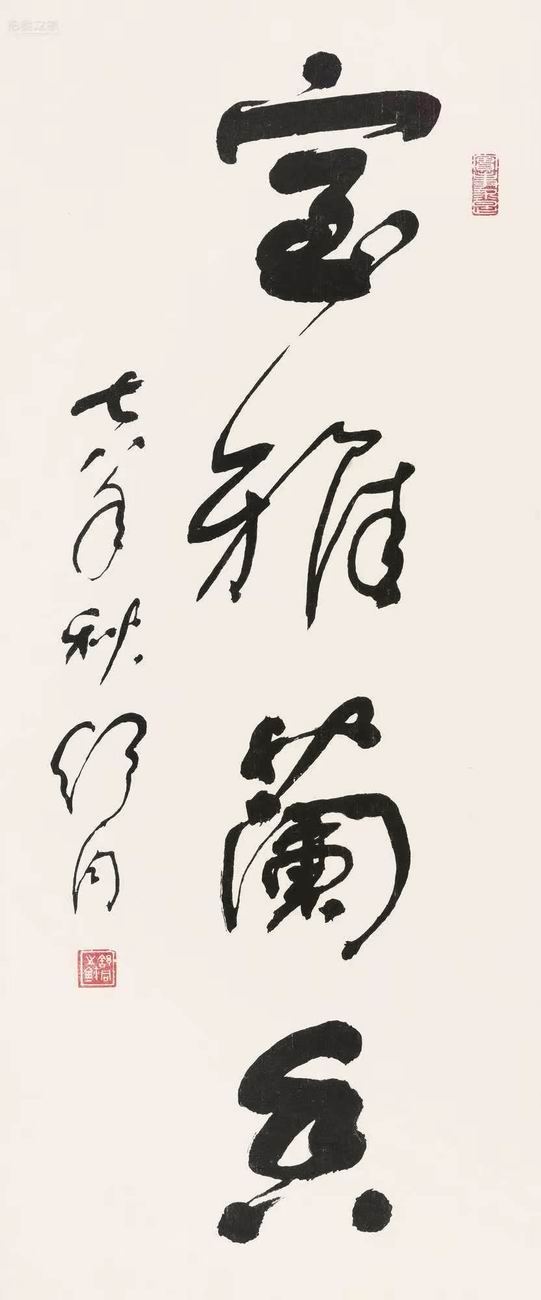 室雅蘭香
七八年秋舒同